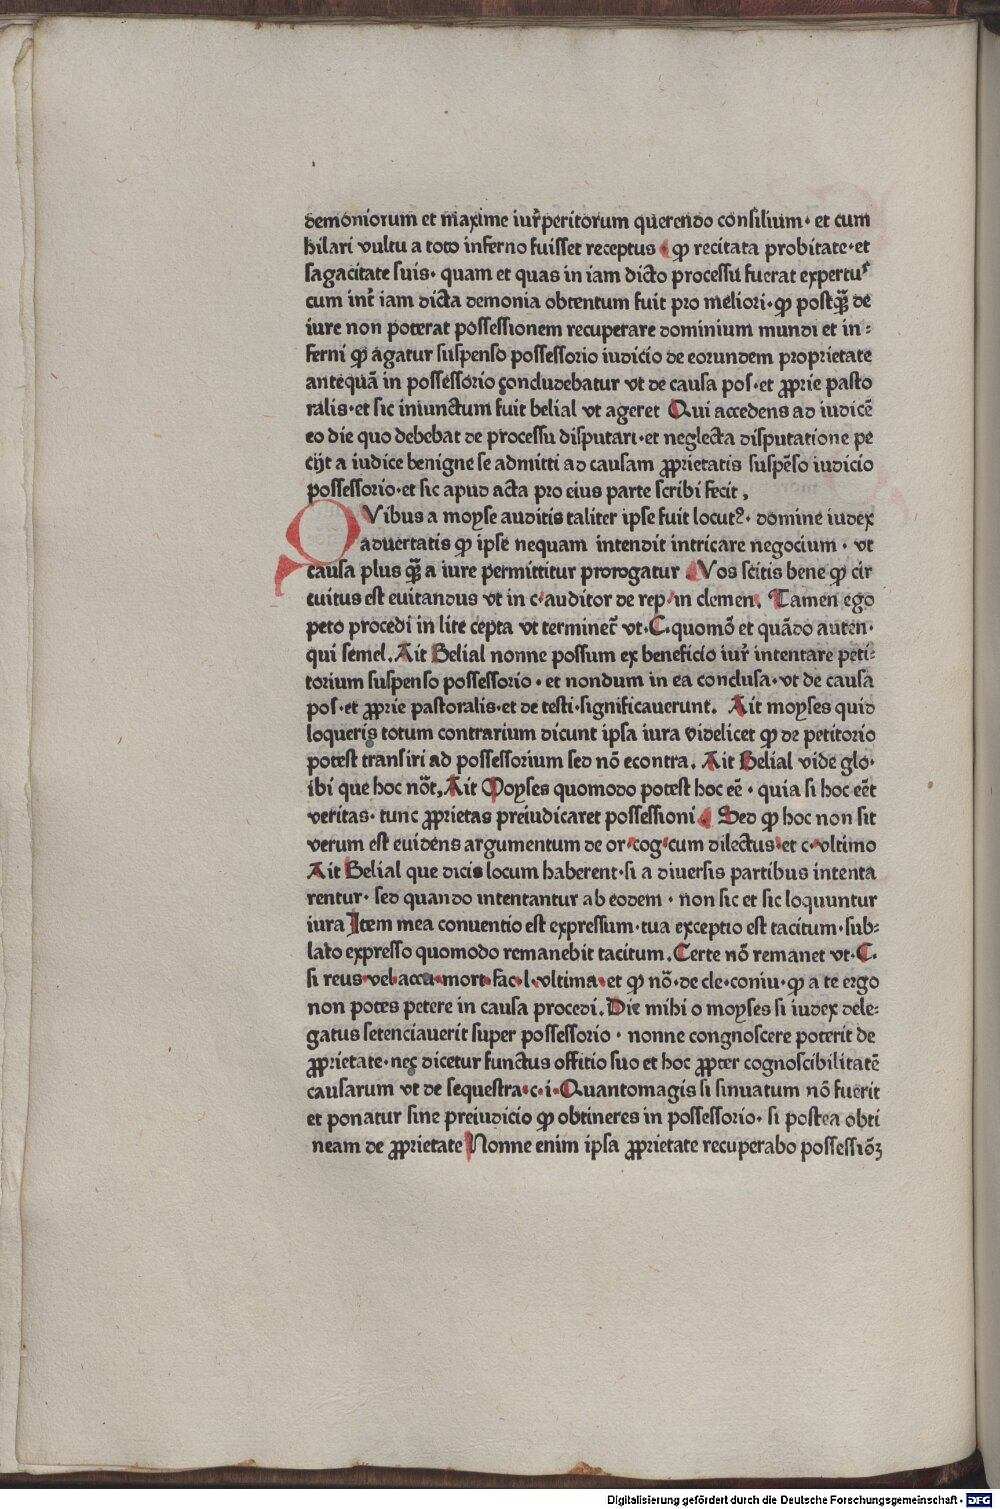 demoniorum et maxime iur̃peritorum querendo consilium· et cum
hilari vultu a toto inferno fuisset receptus · ꝙ recitata probitate·et
sagacitate suis· quam et quas in iam dicto processu fuerat expertuˢ
cum int̃ iam dicta demonia obtentum fuit pro meliori·ꝙ postꝗ̃ de
iure non poterat possessionem recuperare dominium mundi et in⸗
ferni ꝙ agatur suspenso possessorio iudicio de eorundem proprietate
antequã in possessorio concludebatur vt de causa pos·et ꝓprie pasto
ralis·et sic iniunctum fuit belial vt ageret Qui accedens ad iudicẽ
eo die quo debebat de processu disputari·et neglecta disputatione pe
cijt a iudice benigne se admitti ad causam ꝓprietatis suspẽso iudicio
possessorio·et sic apud acta pro eius parte scribi fecit ,
QVibus a moyse auditis taliter ipse fuit locutꝰ· domine iudex
aduertatis ꝙ ipse nequam intendit intricare negocium · vt
causa plus ꝗ̃ a iure permittitur prorogatur . Vos scitis bene ꝙ cir
cuitus est euitandus vt in c·auditor de rep·in clemen. Tamen ego
peto procedi in lite cepta vt terminet̃ vt·C·quomõ et quãdo auten·
qui semel.Ait Belial nonne possum ex beneficio iur̃ intentare peti⸗
torium suspenso possessorio · et nondum in ea conclusa·vt de causa
pos·et ꝓprie pastoralis·et de testi·significauerunt. Ait moyses quid
loqueris totum contrarium dicunt ipsa iura videlicet ꝙ de petitorio
potest transiri ad possessorium sed nõ econtra. Ait Belial vide glo·
ibi que hoc nõt,Ait Moyses quomodo potest hoc eẽ · quia si hoc eẽt
veritas· tunc ꝓprietas preiudicaret possessioni . Sed ꝙ hoc non sit
verum est euidens argumentum de or·cog·cum dilectus·et c·vltimo
Ait Belial que dicis locum haberent·si a diuersis partibus intenta
rentur· sed quando intentantur ab eodem · non sic et sic loquuntur
iura Item mea conuentio est expressum·tua exceptio est tacitum·sub⸗
lato expresso quomodo remanebit tacitum.Certe nõ remanet vt·C·
si reus vel accu·mort·fac·l·vltima·et ꝙ nõ·de cle·coniu·ꝙ a te ergo
non potes petere in causa procedi.Dic mihi o moyses si iudex dele⸗
gatus setenciauerit super possessorio · nonne congnoscere poterit de
ꝓprietate·nec dicetur functus offitio suo et hoc ꝓpter cognoscibilitatẽ
causarum vt de sequestra·c·i·Quantomagis si sinuatum nõ fuerit
et ponatur sine preiudicio ꝙ obtineres in possessorio· si postea obti
neam de ꝓprietate Nonne enim ipsa ꝓprietate recuperabo possessiõꝫ
Digitalisierung gefördert durch die Deutsche Forschungsgemeinschaft - DFG